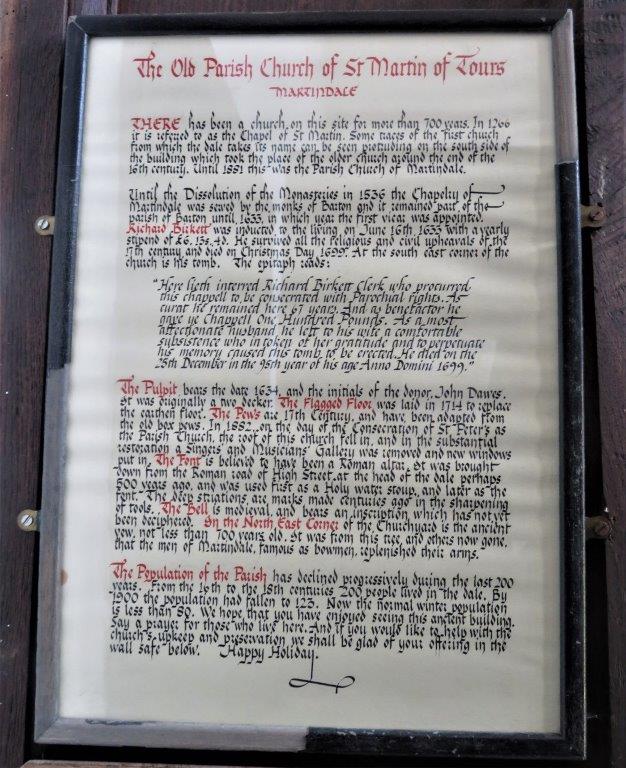 The Old Parish Church of St Martin of Tours
MARTINDALE
THERE has been a church on this site for more than 700 years. In 1266
it is referred to as the Chapel of St Martin. Some traces of the first church
from which the dale takes its name can be seen protruding on the south side of
the building which took the place of the older church around the end of the
16th century. Until 1881 this was the Parish Church of Martindale.
Until the Dissolution of the Monasteries in 1536 the Chapelry of
Martindale was served by the monks of Barton and it remained part of the
parish of Barton until 1633, in which year the first vicar was appointed.
Richard Birkett was inducted to the living on June 16th 1633 with a yearly
stipend of £6. 13s. 4d. He survived all the religious and civil upheavals of the
17th century and died on Christmas Day 1699. At the south east corner of the
church is his tomb. The epitaph reads:
"Here lieth interred Richard Birkett Clerk who procurred
this chappell to be consecrated with Parochial rights. As
curat he remained here 67 years. And as benefactor he
gave ye Chappell One Hundred Pounds. As a most
affectionate husband he left to his wife a comfortable
subsistence who in token of her gratitude and to perpetuate
his memory caused this tomb to be erected. He died on the
25th December in the 95th year of his age Anno Domini 1699."
The Pulpit bears the date 1634, and the initials of the donor, John Dawes.
It was originally a two decker. The Flagged Floor was laid in 1714 to replace
the earthen floor. The Pews are 17th Century, and have been adapted from
the old box pews. In 1882, on the day of the Consecration of St Peter's as
the Parish Church, the roof of this church fell in, and in the substantial
restoration a Singers' and Musicians' Gallery was removed and new windows
put in. The Font is believed to have been a Roman altar. It was brought
down from the Roman road of High Street at the head of the dale perhaps
500 years ago, and was used first as a Holy water stoup, and later as the
font. The deep striations are marks made centuries ago in the sharpening
of tools. The Bell is medieval, and bears an inscription which has not yet
been deciphered. In the North East Corner of the Churchyard is the ancient
yew, not less than 700 years old. It was from this tree, and others now gone,
that the men of Martindale, famous as bowmen, replenished their arms.
The Population of the Parish has declined progressively during the last 200
years. From the 16th to the 18th centuries 200 people lived in the dale. By
1900 the population had fallen to 123. Now the normal winter population
is less than 80. We hope that you have enjoyed seeing this ancient building.
Say a prayer for those who live here. And if you would like to help with the
church's upkeep and preservation we shall be glad of your offering in the
wall safe below. Happy Holiday.